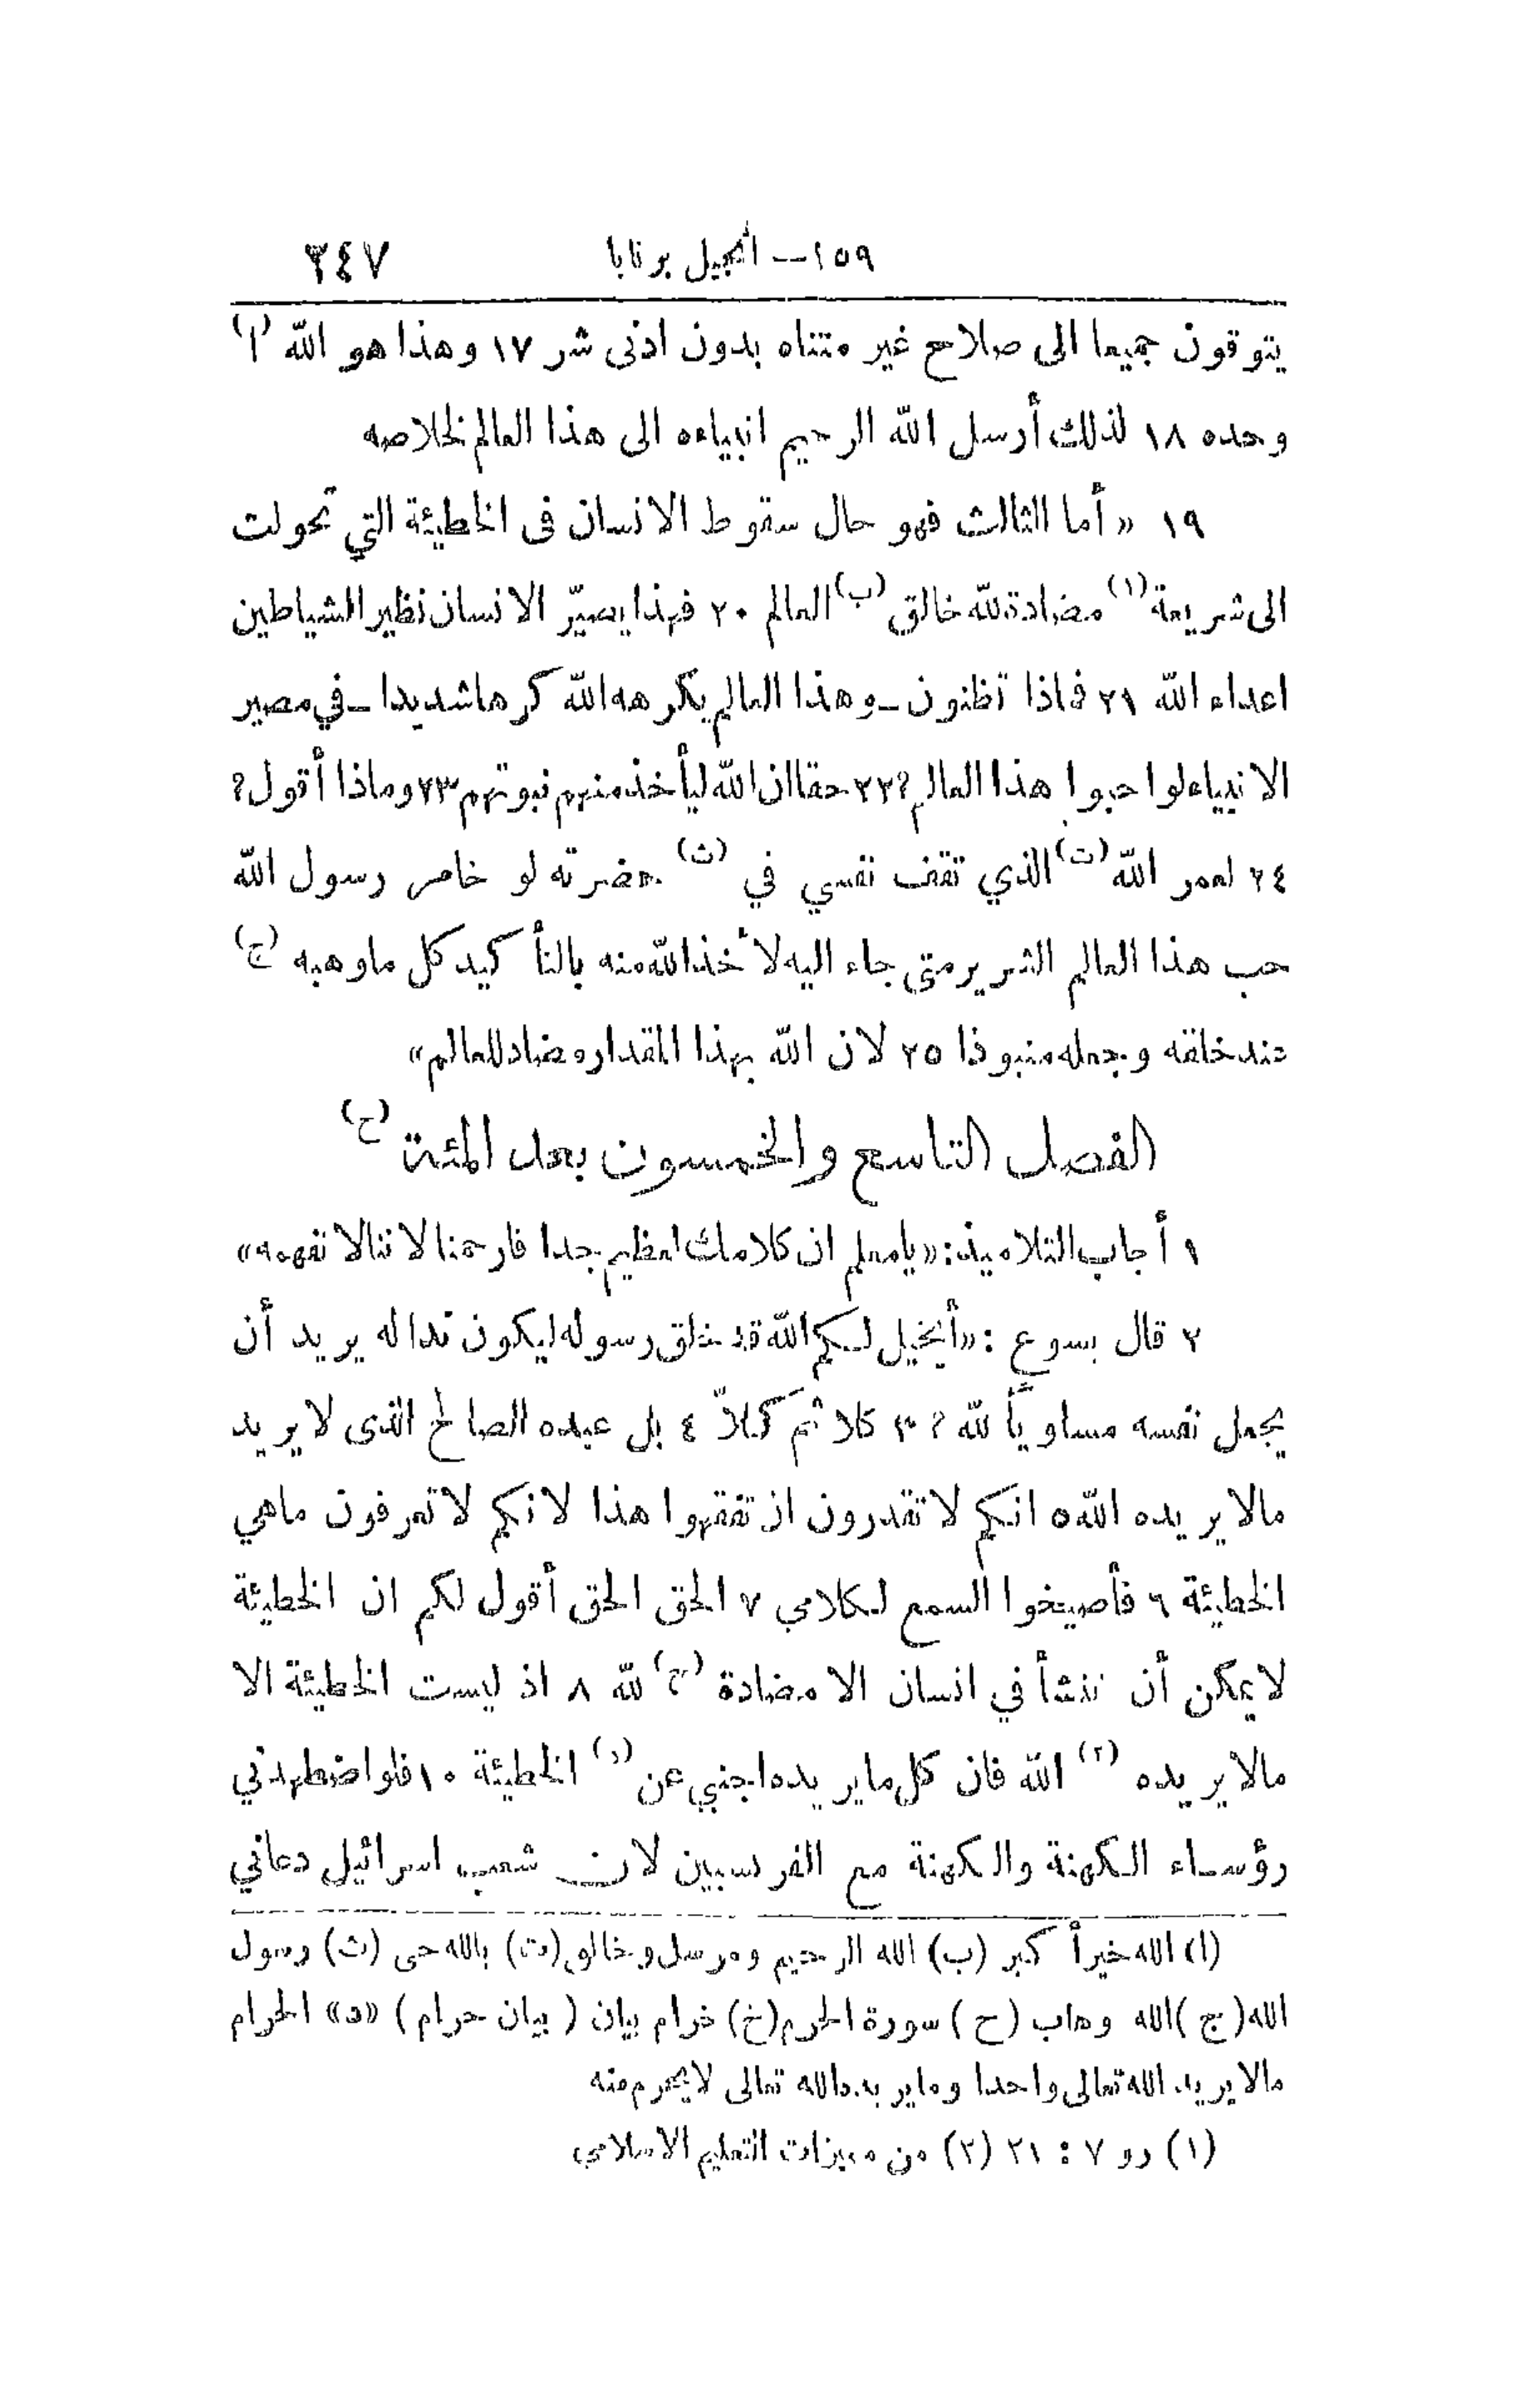 ١٥٩ — انجيل برنابا ٣٤٧
يتوقون جميعا الى صلاح غير متناه بدون ادنى شر ١٧ وهذا هو الله (ا)
وحده ١٨ لذلك أرسل الله الرحيم انبياءه الى هذا العالم لخلاصه
١٩ «أما الثالث فهو حال سقوط الانسان فى الخطيئة التي تحولت
الى شريعة (١) مضادة لله خالق (ب) العالم ٢٠ فهذا يصيّر الانسان نظير الشياطين
اعداء الله ٢١ فماذا تظنون ــ وهذا العالم يكرهه الله كرها شديدا ــ في مصير
الانبياء لو احبوا هذا العالم ؟ ٢٢ حقا ان الله ليأخذ منهم نبوتهم ٢٣ وماذا أقول ؟
٢٤ لعمر الله (ت) الذي تقف نفسي في (ث) حضرته لو خامر رسول الله
حب هذا العالم الشرير متى جاء اليه لأخذ الله منه بالتأكيد كل ماوهبه (ج)
عند خلقه وجعله منبوذا ٢٥ لان الله بهذا المقدار مضاد للعالم»
الفصل التاسع والخمسون بعد المئة (ح)
١ أجاب التلاميذ : «يامعلم ان كلامك لعظيم جدا فارحمنا لاننا لا نفهمه»
٢ قال يسوع : «أيخيل لكم الله قد خلق رسوله ليكون ندا له يريد أن
يجعل نفسه مساوياً لله ؟ ٣ كلا ثم كلاّ ٤ بل عبده الصالح الذى لا يريد
مالا يريده الله ٥ انكم لا تقدرون ان تفقهوا هذا لانكم لا تعرفون ماهي
الخطيئة ٦ فأصيخوا السمع لكلامي ٧ الحق الحق أقول لكم ان الخطيئة
لا يمكن أن تنشأ في انسان الا مضادة (خ) لله ٨ اذ ليست الخطيئة الا
مالا يريده (٢) الله فان كل مايريده اجنبي عن (د) الخطيئة ١٠ فلو اضطهدني
رؤساء الكهنة والكهنة مع الفريسيين لان شعب اسرائيل دعاني
(ا) الله خير أكبر (ب) الله الرحيم ومرسل وخالق (ت) بالله حى (ث) رسول
الله (ج) الله وهاب (ح) سورة الحرم (خ) خرام بيان ( بيان حرام ) «د» الحرام
مالا يريد الله تعالى واحدا وما يريده الله تعالى لا يحرم منه
(١) رو ٧ : ٢١ (٢) من مميزات التعليم الاسلامي